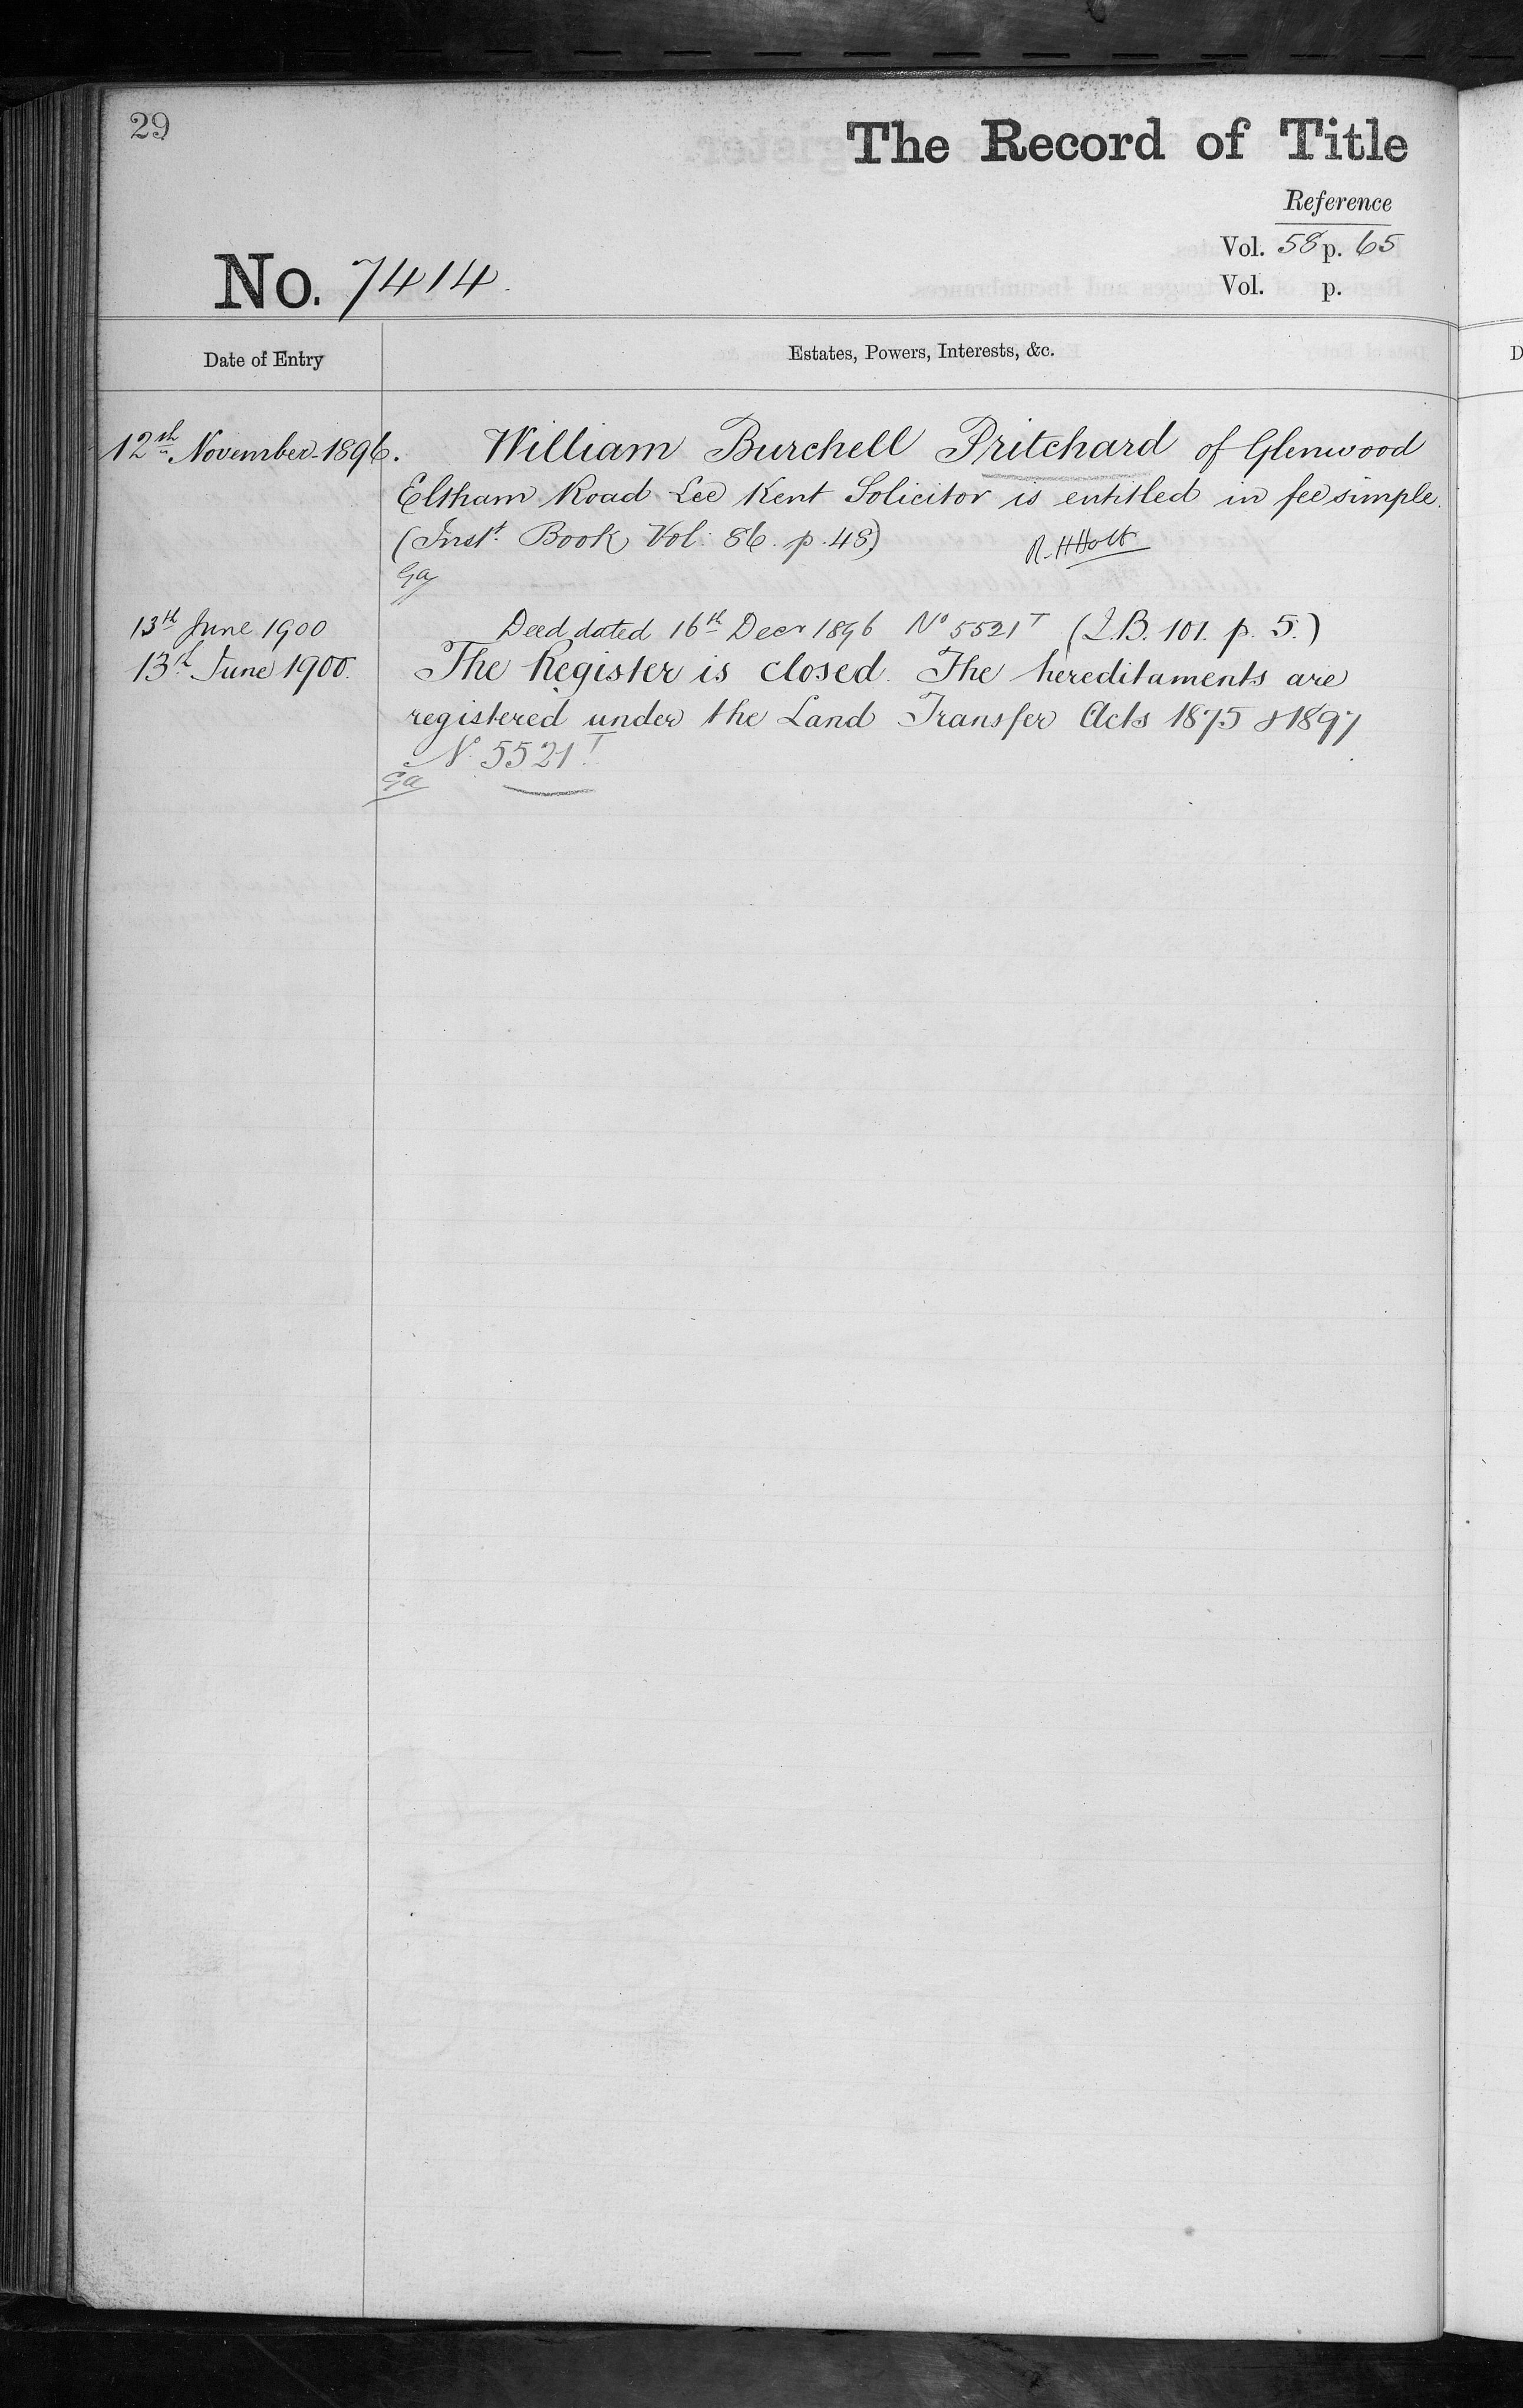 29
The Record of Title
Reference
Vol. 58 p. 65
No. 7414.
Vol. p.
Date of Entry
Estates, Powers, Interests, &c.
12th November 1896. William Burchell Pritchard of Glenwood
Eltham Road Lee Kent Solicitor is entitled in fee simple.
(Inst. Book Vol: 86. p. 48)
R. H Holt
Ga
13th June 1900 Deed dated 16th Decr 1896 No 5521T (I.B. 101. p. 5.)
13th June 1900. The Register is closed. The hereditaments are
registered under the Land Transfer Acts 1875 & 1897
No. 5521T.
Ga